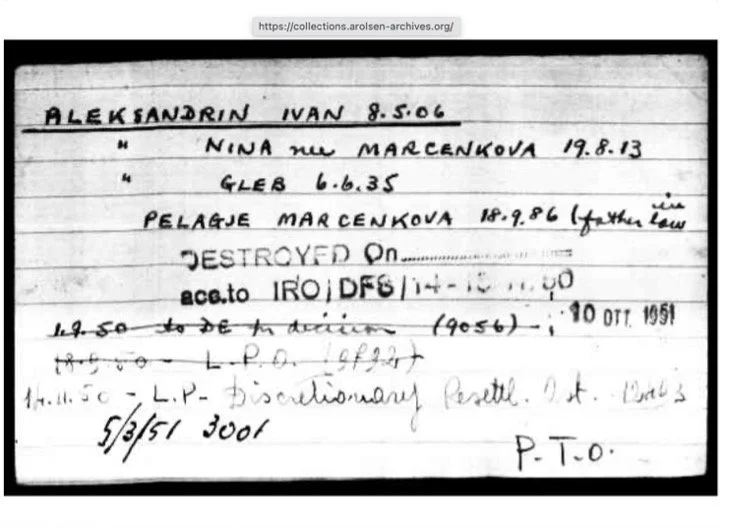 https://collections.arolsen-archives.org/
ALEKSANDRIN IVAN 8.5.06
" NINA nee MARCENKOVA 19.8.13
" GLEB 6.6.35
PELAGJE MARCENKOVA 18.9.86 (father in law
DESTROYED On
acc.to IRO/DFS/14-
1.9.50 to DE for decision (9056) -
10 OTT. 1951
18.9.50 - L.P.O.
14.11.50 - L.P- Discretionary Resettl.
5/3/51 3001
P.T.O.